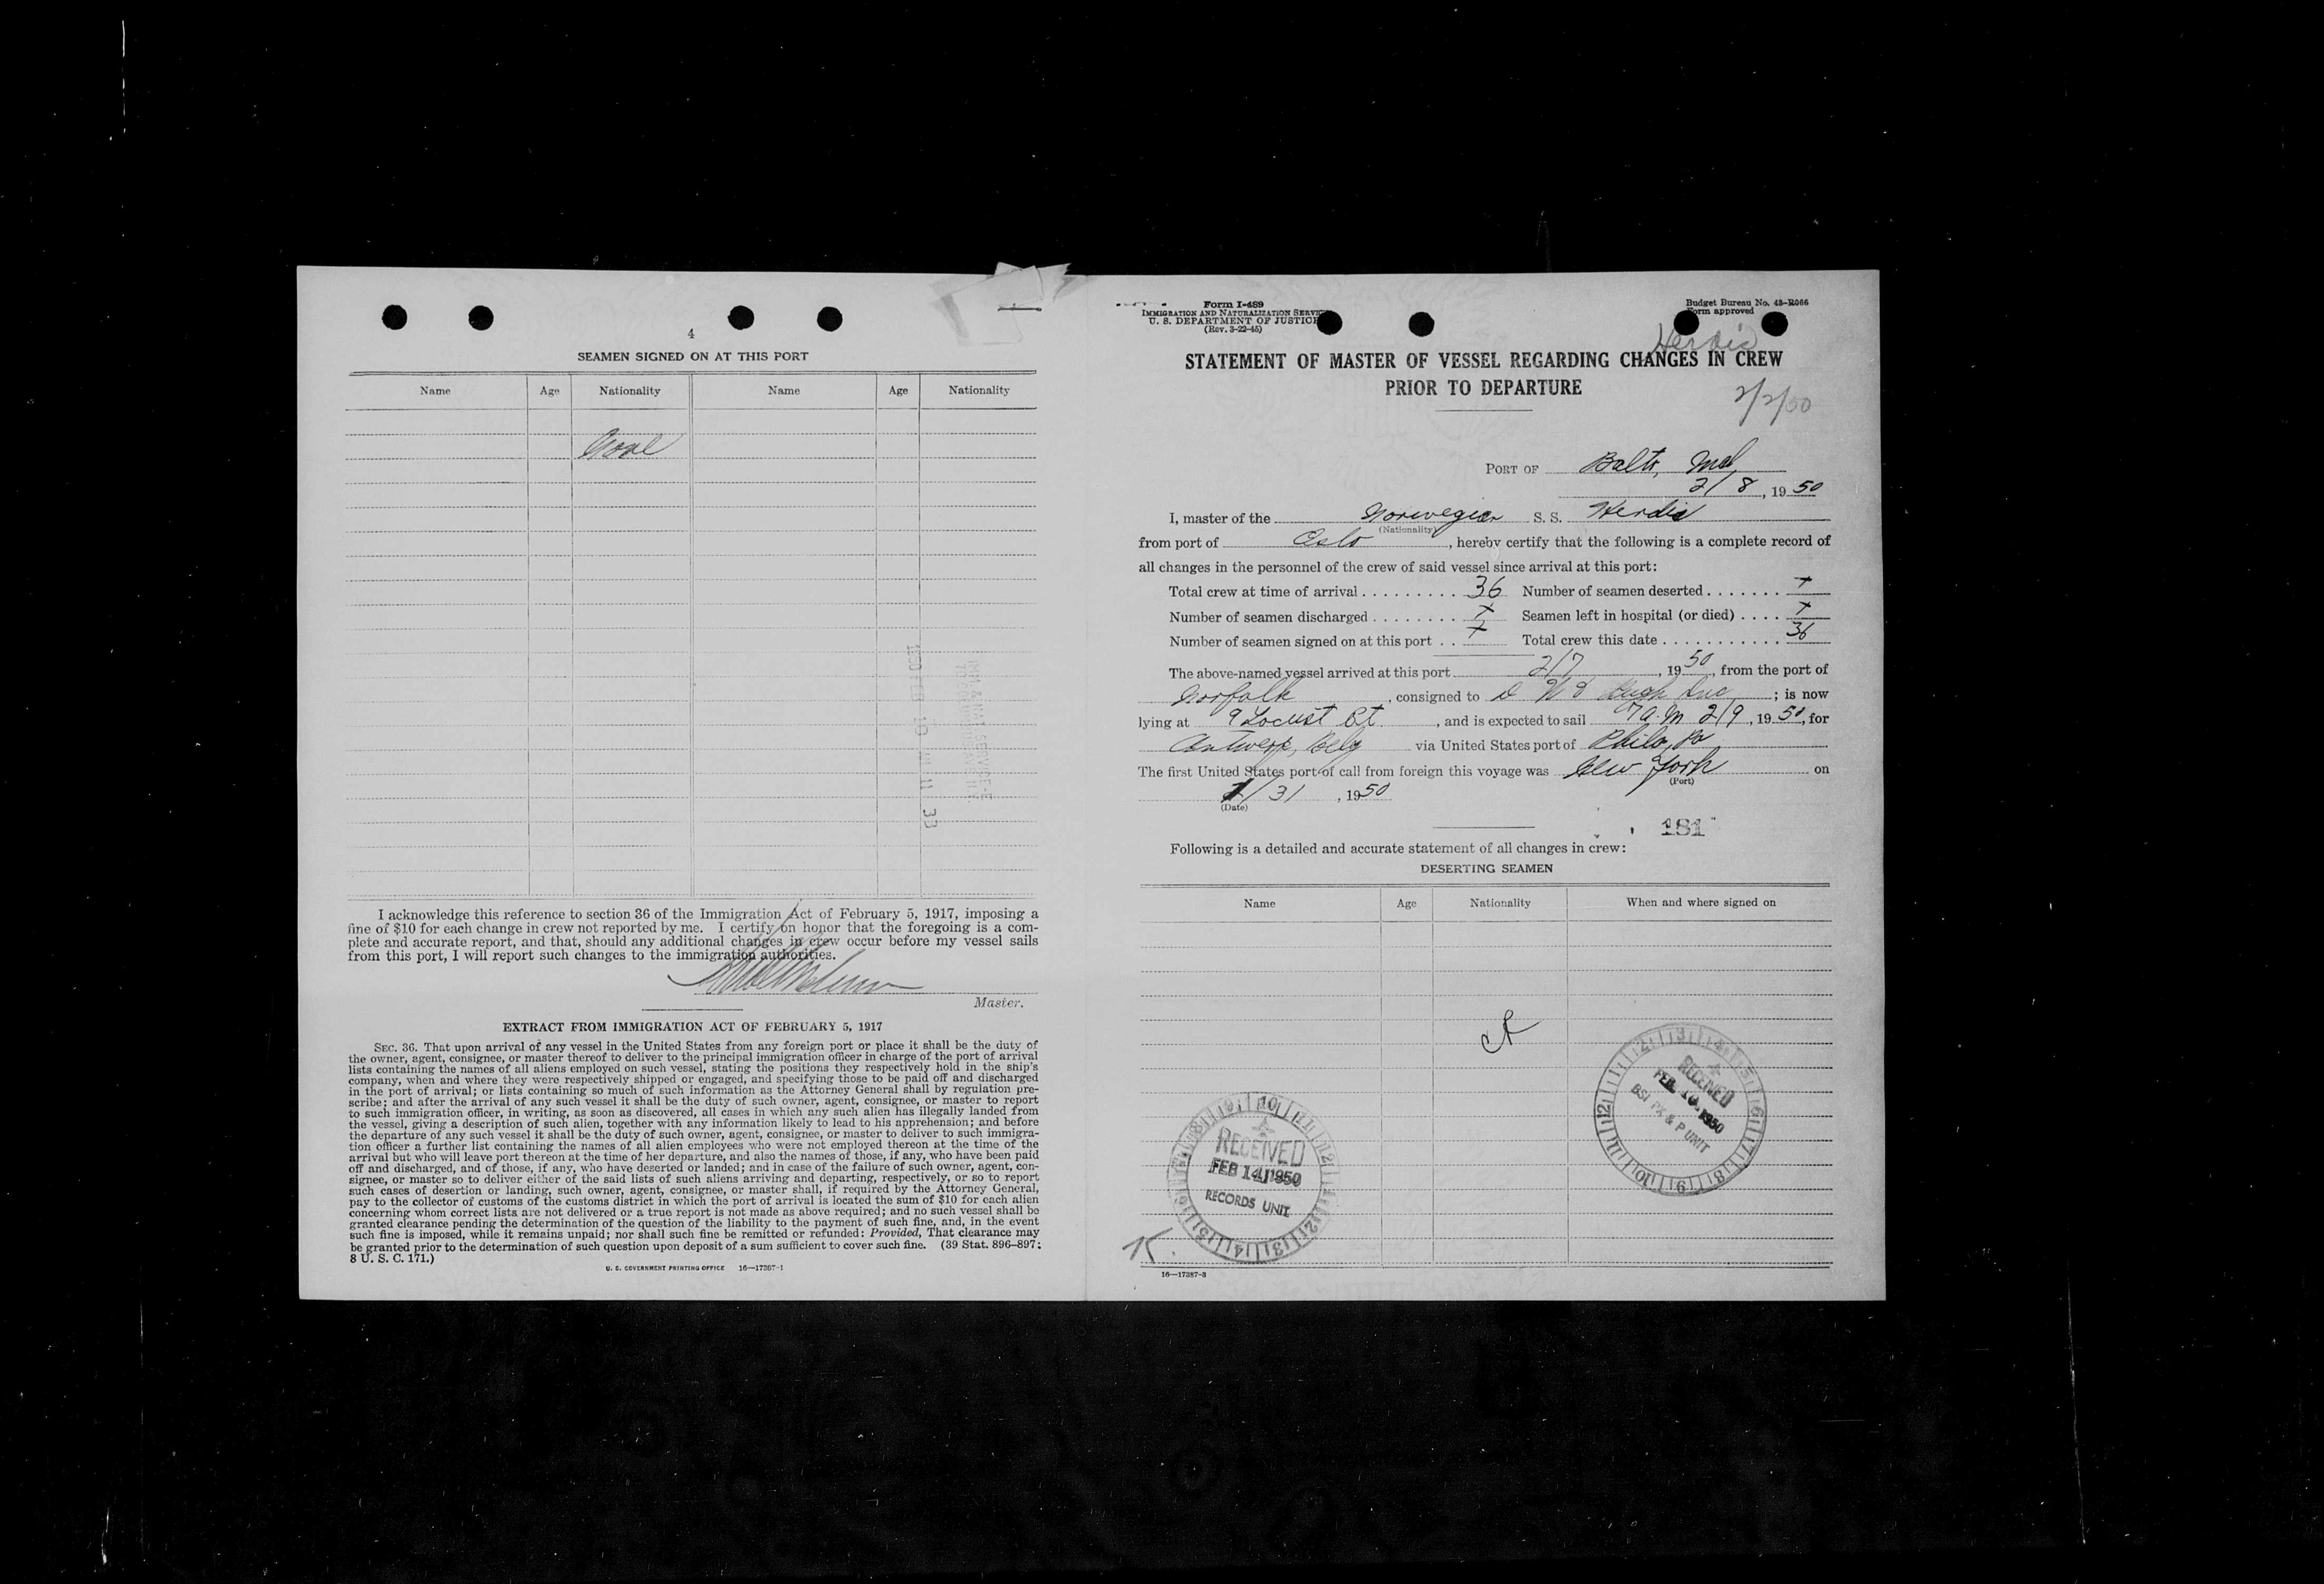 4
SEAMEN SIGNED ON AT THIS PORT
Name Age Nationality Name Age Nationality
None
I acknowledge this reference to section 36 of the Immigration Act of February 5, 1917, imposing a
fine of $10 for each change in crew not reported by me. I certify on honor that the foregoing is a com-
plete and accurate report, and that, should any additional changes in crew occur before my vessel sails
from this port, I will report such changes to the immigration authorities.
Master.
EXTRACT FROM IMMIGRATION ACT OF FEBRUARY 5, 1917
SEC. 36. That upon arrival of any vessel in the United States from any foreign port or place it shall be the duty of
the owner, agent, consignee, or master thereof to deliver to the principal immigration officer in charge of the port of arrival
lists containing the names of all aliens employed on such vessel, stating the positions they respectively hold in the ship's
company, when and where they were respectively shipped or engaged, and specifying those to be paid off and discharged
in the port of arrival; or lists containing so much of such information as the Attorney General shall by regulation pre-
scribe; and after the arrival of any such vessel it shall be the duty of such owner, agent, consignee, or master to report
to such immigration officer, in writing, as soon as discovered, all cases in which any such alien has illegally landed from
the vessel, giving a description of such alien, together with any information likely to lead to his apprehension; and before
the departure of any such vessel it shall be the duty of such owner, agent, consignee, or master to deliver to such immigra-
tion officer a further list containing the names of all alien employees who were not employed thereon at the time of the
arrival but who will leave port thereon at the time of her departure, and also the names of those, if any, who have been paid
off and discharged, and of those, if any, who have deserted or landed; and in case of the failure of such owner, agent, con-
signee, or master so to deliver either of the said lists of such aliens arriving and departing, respectively, or so to report
such cases of desertion or landing, such owner, agent, consignee, or master shall, if required by the Attorney General,
pay to the collector of customs of the customs district in which the port of arrival is located the sum of $10 for each alien
concerning whom correct lists are not delivered or a true report is not made as above required; and no such vessel shall be
granted clearance pending the determination of the question of the liability to the payment of such fine, and, in the event
such fine is imposed, while it remains unpaid; nor shall such fine be remitted or refunded: Provided, That clearance may
be granted prior to the determination of such question upon deposit of a sum sufficient to cover such fine. (39 Stat. 896–897;
8 U. S. C. 171.)
U. S. GOVERNMENT PRINTING OFFICE 16—17387-1
Form I-489
IMMIGRATION AND NATURALIZATION SERVICE
U. S. DEPARTMENT OF JUSTICE
(Rev. 3-22-45)
Budget Bureau No. 43-R066
Form approved
Herdis
STATEMENT OF MASTER OF VESSEL REGARDING CHANGES IN CREW
PRIOR TO DEPARTURE
2/2/50
PORT OF Balto, Md
2/8, 1950
I, master of the Norwegian S. S. Herdis
(Nationality)
from port of Oslo, hereby certify that the following is a complete record of
all changes in the personnel of the crew of said vessel since arrival at this port:
Total crew at time of arrival 36 Number of seamen deserted +
Number of seamen discharged + Seamen left in hospital (or died) +
Number of seamen signed on at this port + Total crew this date 36
The above-named vessel arrived at this port 2/7, 1950, from the port of
Norfolk, consigned to Inc; is now
lying at 9 Locust Pt, and is expected to sail 7 a.m 2/9, 1950, for
Antwerp, Belg via United States port of Phila, Pa
The first United States port of call from foreign this voyage was New York on
(Port)
1/31, 1950
(Date)
181
Following is a detailed and accurate statement of all changes in crew:
DESERTING SEAMEN
Name Age Nationality When and where signed on
RECEIVED
FEB 10 1950
BSI PX & P UNIT
RECEIVED
FEB 14 1950
RECORDS UNIT
16—17387-3